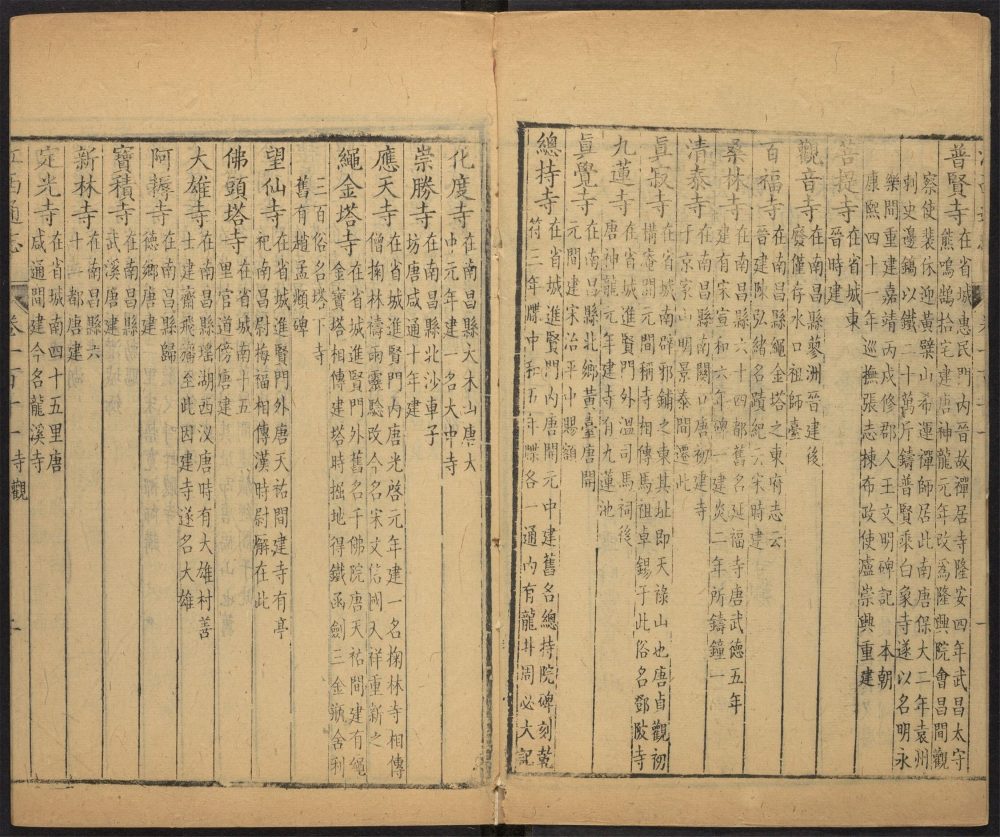 普賢寺在省城惠民門內晉故禪居寺隆安四年武昌太守
熊鳴鶴拾宅建唐神龍元年改爲隆興院會昌間觀
察使裴休迎黃檗山希運禪師居此南唐保大二年袁州
刺史邊鎬以鐵二十萬斤鑄普賢乘白象寺遂以名明永
樂間重建嘉靖丙戌修郡人王文明碑記 本朝
康熙四十一年巡撫張志棟布政使盧崇興重建
菩提寺在省城東
晉時建
觀音寺在南昌縣蓼洲晉建後
廢僅存水口祖師臺
百福寺在南昌縣繩金塔之東府志云
晉建陳弘緒名蹟紀云宋時建
桑林寺在南昌縣六十四都舊名延福寺唐武德五年
建有宋宣和六年碑一建炎二年所鑄鐘一
清泰寺在南昌縣南關口唐初建寺
于京家山明景泰間遷此
眞寂寺在省城南辟邪鋪之東其址即天祿山也唐貞觀初
構菴開元間稱寺相傳馬祖卓錫于此俗名鄧陂寺
九蓮寺在省城進賢門外溫司馬祠後
唐神龍元年建寺有九蓮池
眞覺寺在南昌縣北鄉黃臺唐開
元間建宋治平中賜額
總持寺在省城進賢門內唐開元中建舊名總持院碑刻乾
符二年牒中和五年牒各一通內有龍井周必大記
化度寺在南昌縣大木山唐大
中元年建一名大中寺
崇勝寺在南昌縣北沙車子
坊唐咸通十年建
應天寺在省城進賢門內唐光啓元年建一名掬林寺相傳
僧掬林禱雨靈驗改今名宋文信國天祥重新之
繩金塔寺在省城進賢門外舊名千佛院唐天祐間建有繩
金寶塔相傳建塔時掘地得鐵函劍三金瓶舍利
三百俗名塔下寺
舊有趙孟頫碑
望仙寺在省城進賢門外唐天祐間建寺有亭
祀南昌尉梅福相傳漢時尉解在此
佛頭塔寺在省城南十五
里官道傍唐建
大雄寺在南昌縣瑤湖西汊唐時有大雄村善
士建齋飛瘞至此因建寺遂名大雄
阿耨寺在南昌縣歸
德鄉唐建
寶積寺在南昌縣
武溪唐建
新林寺在南昌縣六
十都唐建
定光寺在省城南四十五里唐
咸通間建今名龍溪寺
江西通志 卷一百十一 寺觀